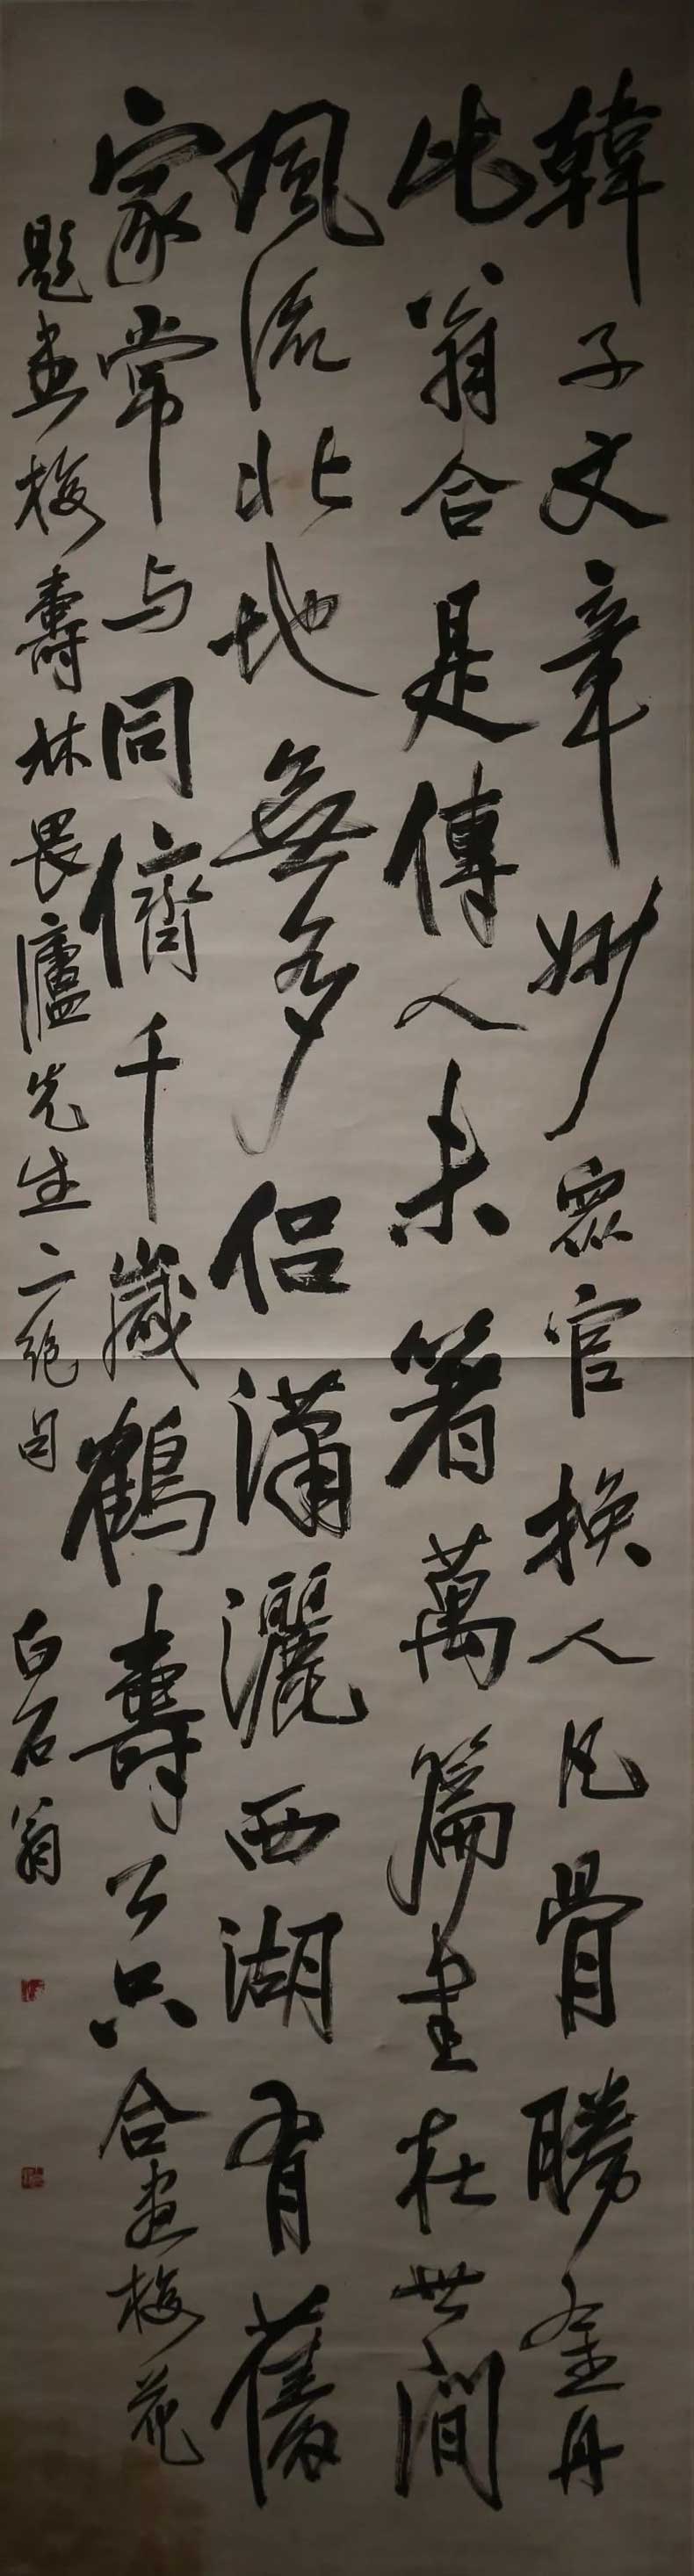 韓子文章妙眾官換人凡骨勝金丹
此翁合是傳人未著萬篇畫在世間
風流北地無多侶瀟灑西湖有舊
家常与同儕千歲鶴壽公只合畫梅花
題畫梅壽林畏廬先生二絕句 白石翁